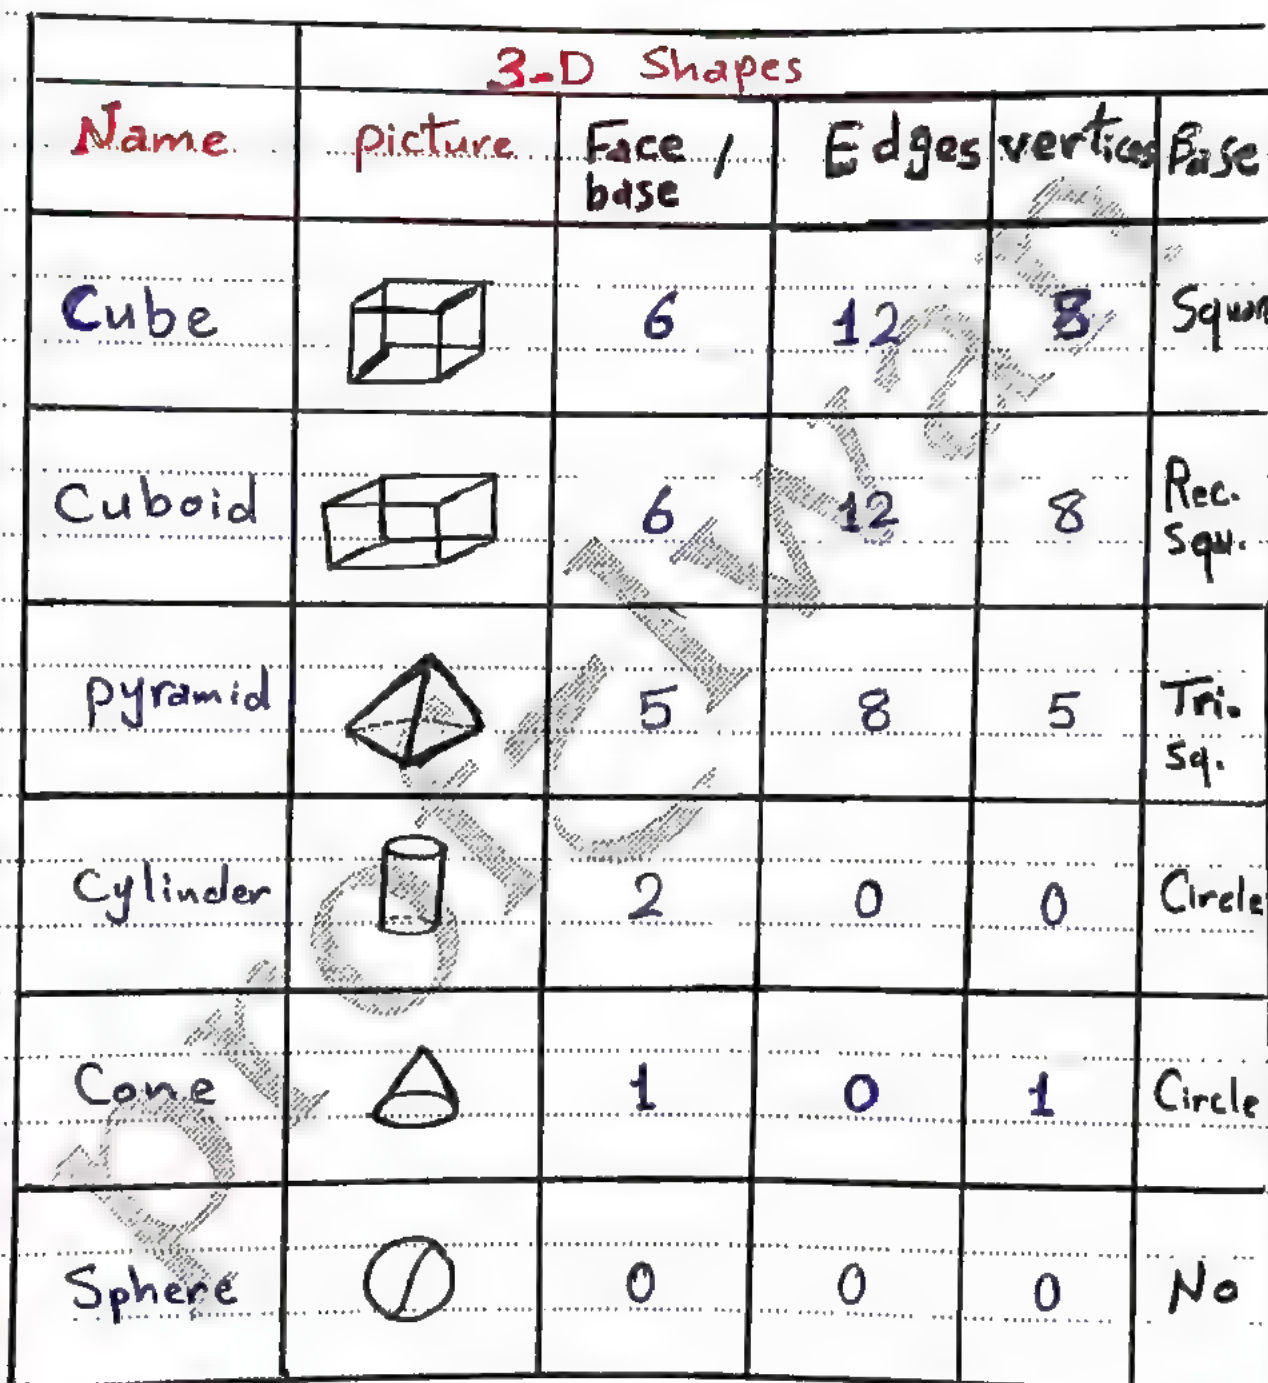 3-D Shapes
Name picture Face / Edges vertices Base
base
Cube 6 12 8
Cuboid 6 12 8 Rec.
Squ.
pyramid 5 8 5 Tri.
Sq.
Cylinder 2 0 0 Circle
Cone 1 0 1 Circle
Sphere 0 0 0 No